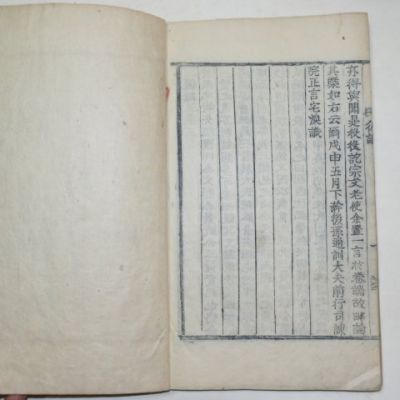 亦得與聞是役後託宗文老使余置一言於卷端故略論
其槩如右云爾戊申五月下澣後孫通訓大夫前行司諫
院正言宅煥識